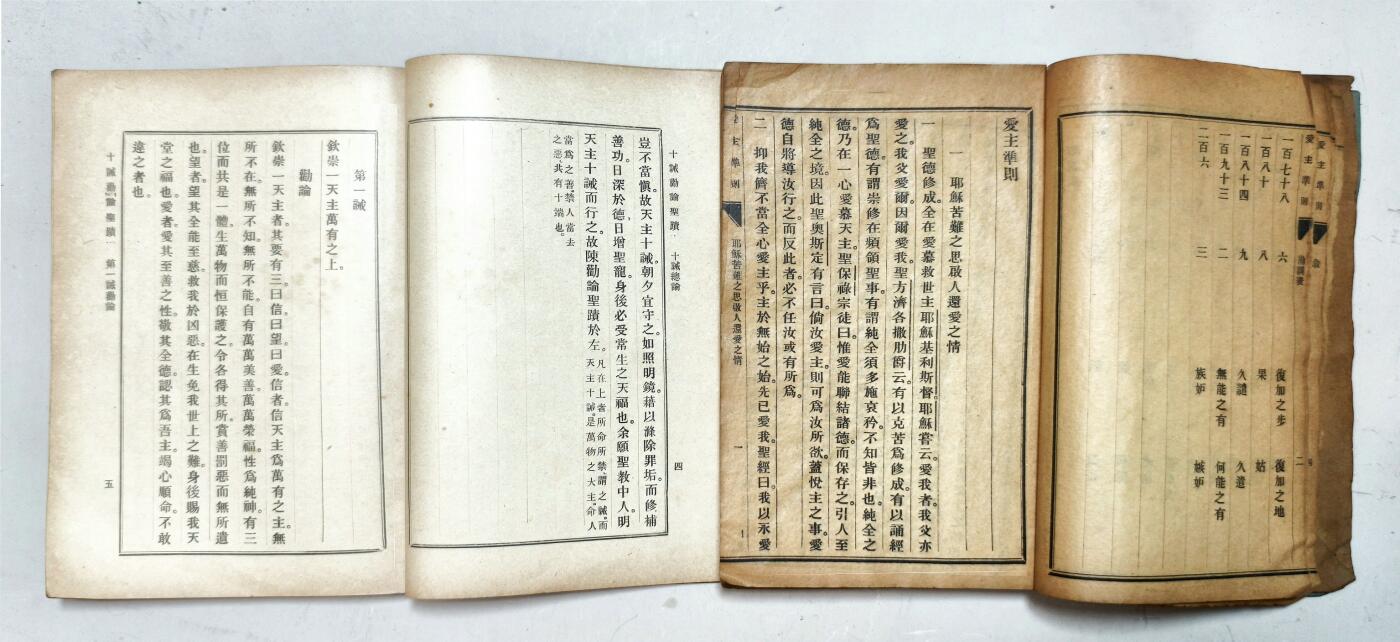 愛主準則
愛主準則 勘誤表 二
一百七十八 六 復加之步 復加之地
一百八十 八 果 姑
一百八十四 九 久譴 久遣
一百九十三 二 無能之有 何能之有
二百六 三 族妒 嫉妒
愛主準則
一 耶穌苦難之思啟人還愛之情
一 聖德修成。全在愛慕救世主耶穌基利斯督。耶穌嘗云。愛我者。我父亦
愛之。我父愛爾。因爾愛我。聖方濟各撒肋爵云。有以克苦為修成。有以誦經
為聖德。有謂崇修在頻領聖事。有謂純全須多施哀矜。不知皆非也。純全之
德。乃在一心愛慕天主。聖保祿宗徒曰。惟愛能聯結諸德。而保存之。引人至
純全之境。因此聖奧斯定有言曰。倘汝愛主。則可為汝所欲。蓋悅主之事。愛
德自將導汝行之。而反此者。必不任汝或有所為。
二 抑我儕不當全心愛主乎。主於無始之始。先已愛我。聖經曰。我以永愛
主準則 耶穌苦難之思啟人還愛之情 一
十誡勸論聖蹟 十誡總論 四
豈不當愼。故天主十誡。朝夕宜守之。如照明鏡。藉以滌除罪垢。而修補
善功。日深於德。日增聖寵。身後必受常生之天福也。余願聖敎中人。明
天主十誡而行之。故陳勸論聖蹟於左。凡在上者。所命所禁。謂之誡。而天主十誡。是萬物之大主。命人
當為之善。禁人當去之惡。共有十端也。
第一誡
欽崇一天主萬有之上。
勸論
欽崇一天主者。其要有三。曰信。曰望。曰愛。信者。信天主為萬有之主。無
所不在。無所不知。無所不能。自有萬萬美善。萬萬榮福。性為純神。有三
位而共是一體。生萬物而恒保護之。令各得其所。賞善罰惡而無所遺
也。望者。望其全能至慈。救我於凶惡。在生免我世上之難。身後賜我天
堂之福也。愛者。愛其至善之性。敬其全德。認其為吾主。竭心順命。不敢
違之者也。
十誡勸論聖蹟 第一誡勸論 五